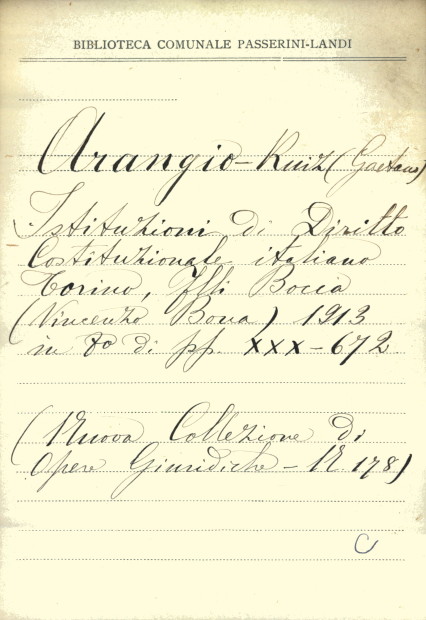 BIBLIOTECA COMUNALE PASSERINI-LANDI
Arangio-Ruiz (Gaetano)
Istituzioni di Diritto
Costituzionale italiano
Torino, Flli Bocca
(Vincenzo Bona) 1913
in 8o di pp XXX-672
(Nuova Collezione di
Opere Giuridiche - N. 178)
C